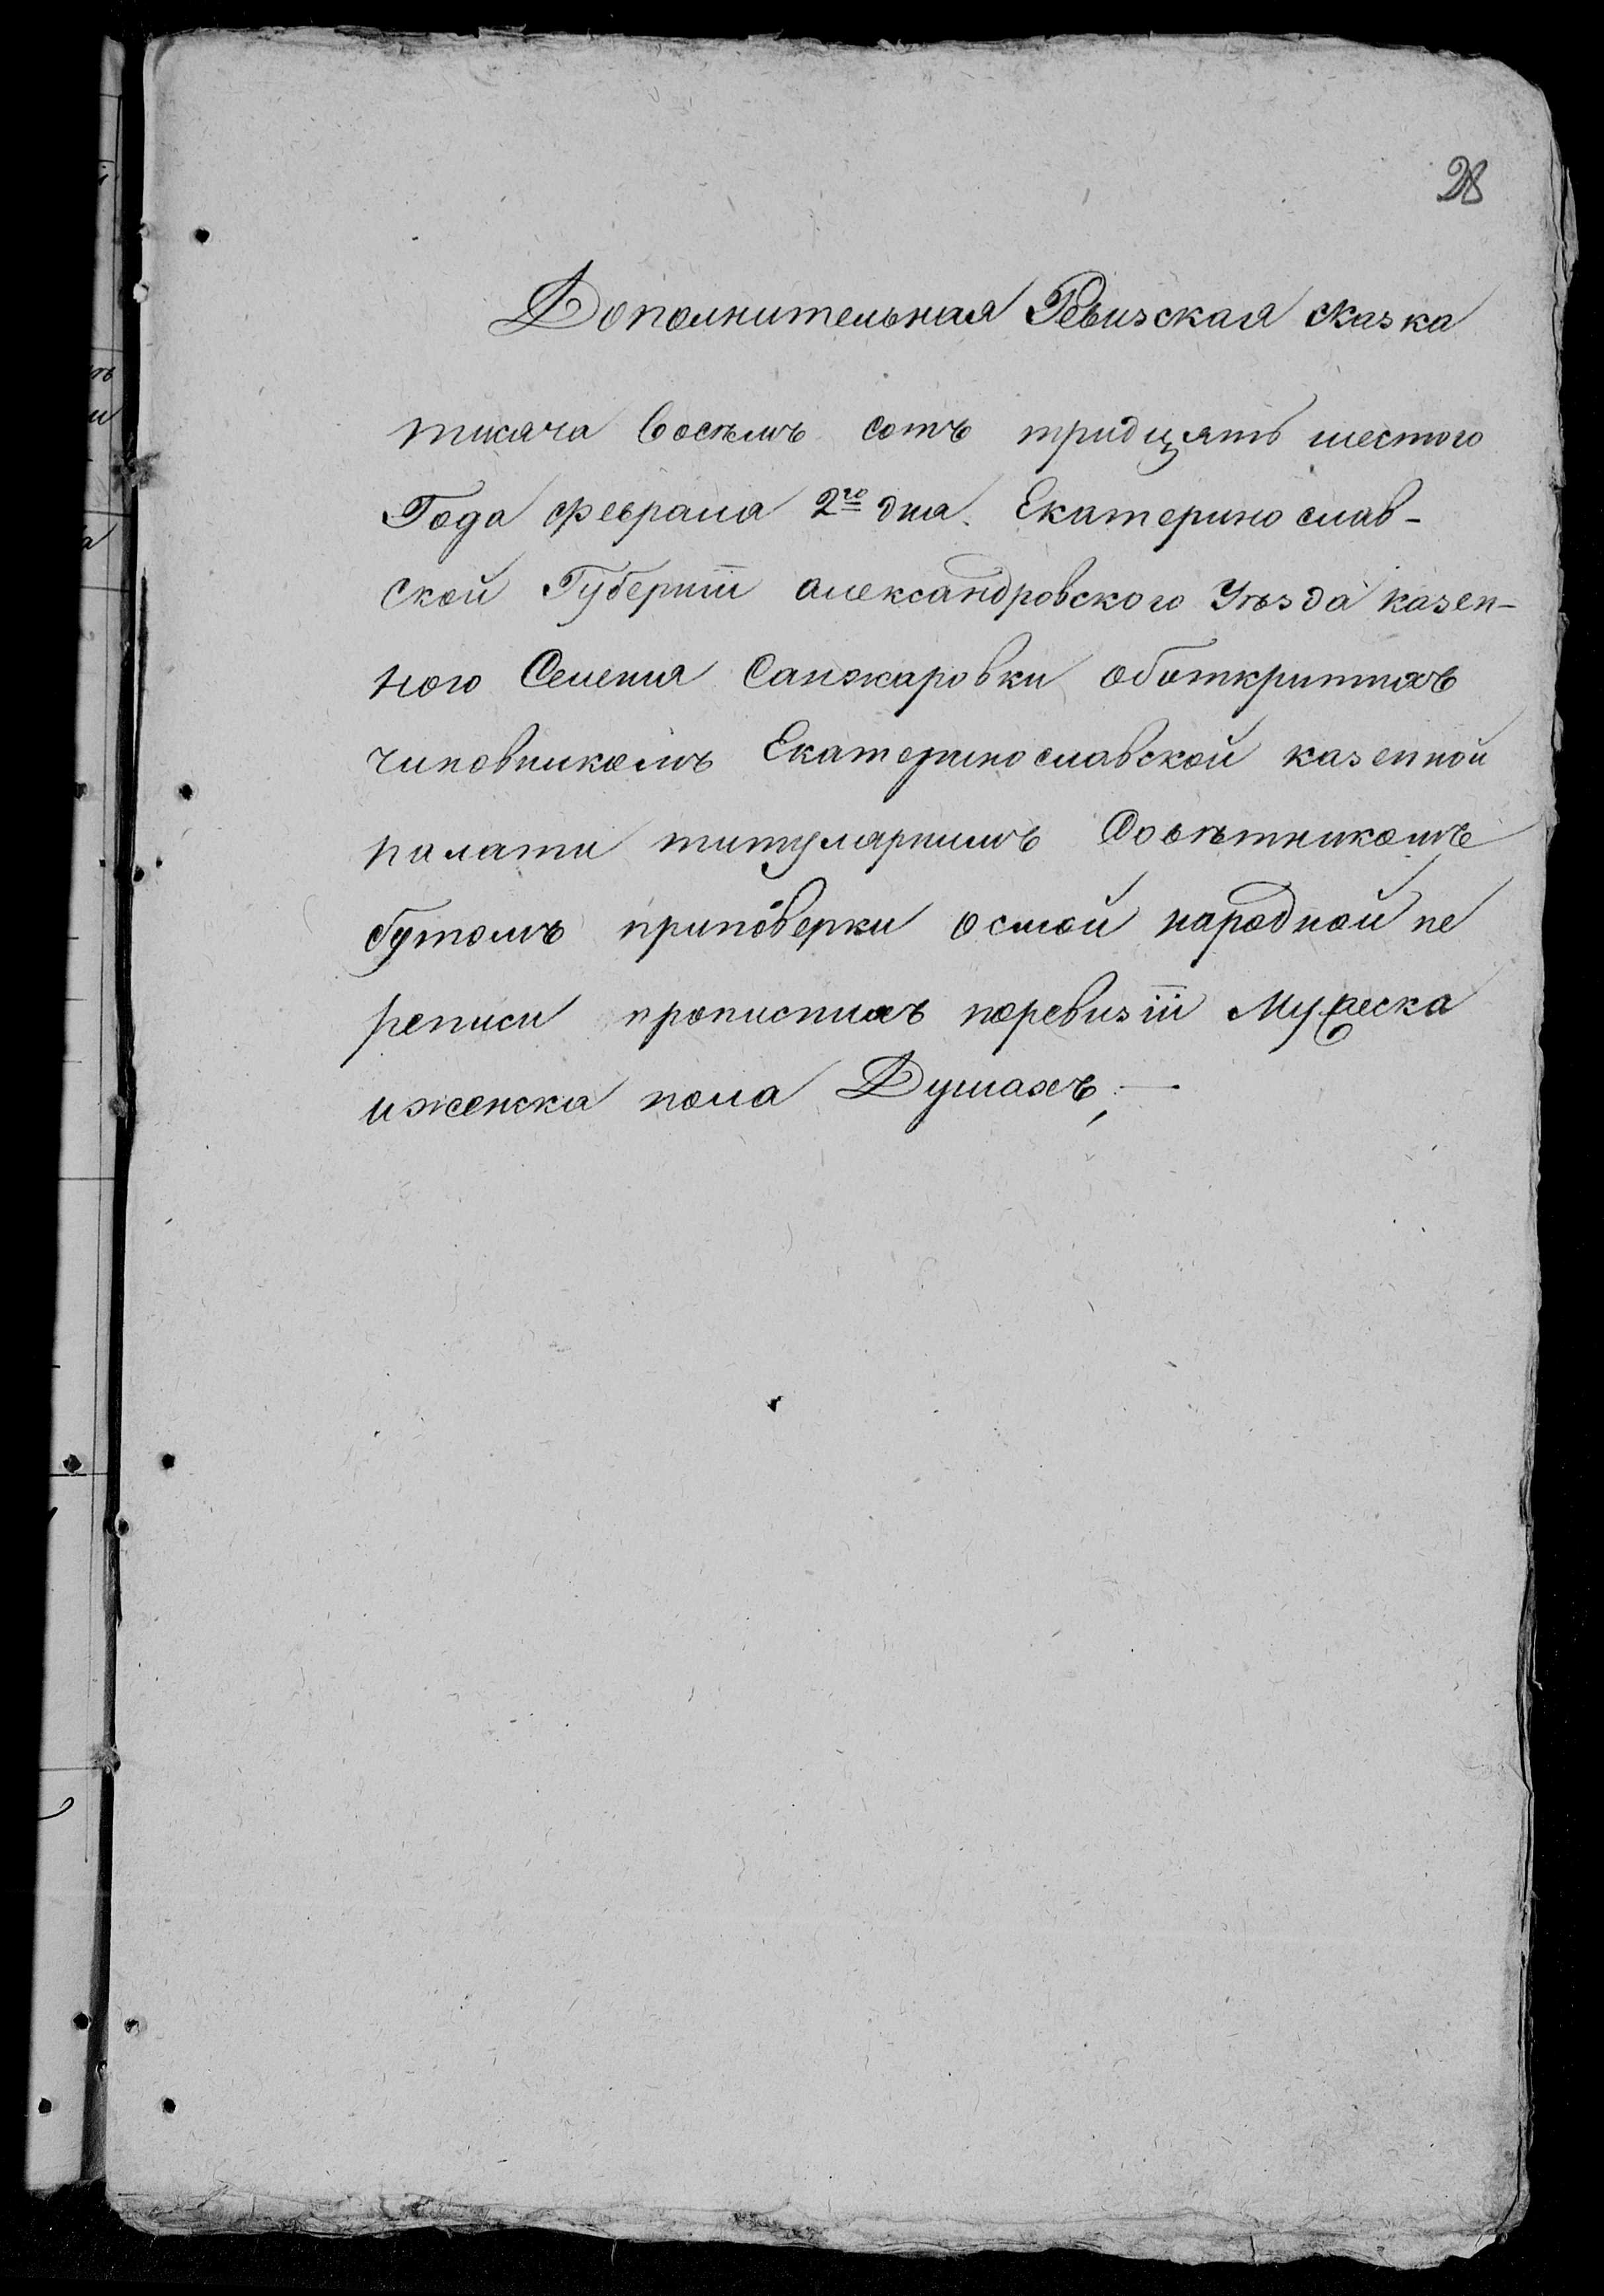 28
Дополнительная Ревизская сказка
тисяча восѣмъ сотъ тридцять шестого
Года февраля 2го дня. Екатеринослав-
ской Губерніи александровского Уѣзда казен-
ного Селенія Санжаровки оботкритихъ
чиновникомъ Екатеринославской казенной
палати титулярнимъ Совѣтникомъ
бутомъ приповерки осмой народной пе
реписи прописнихъ поревизіи Мужеска
иженска пола Душахъ, —